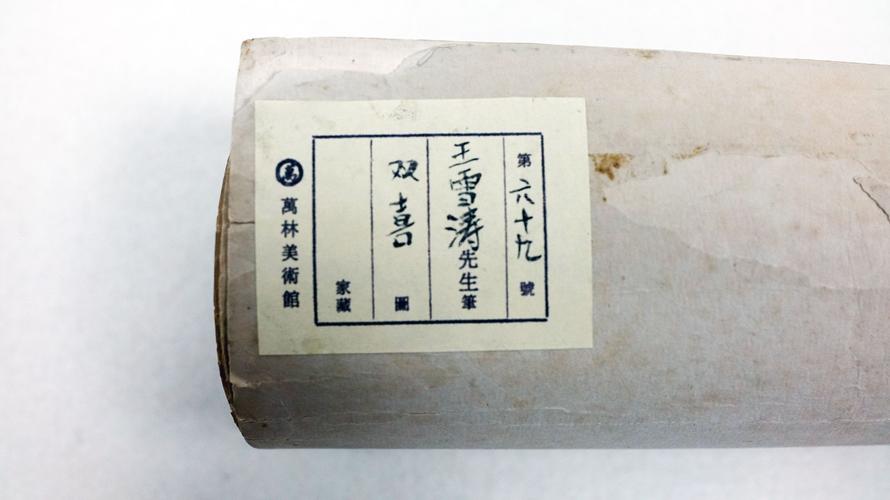 第六十九號
王雪涛先生筆
双喜圖
家藏
萬
萬林美術館